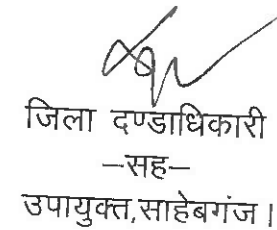 जिला दण्डाधिकारी
–सह–
उपायुक्त,साहेबगंज।